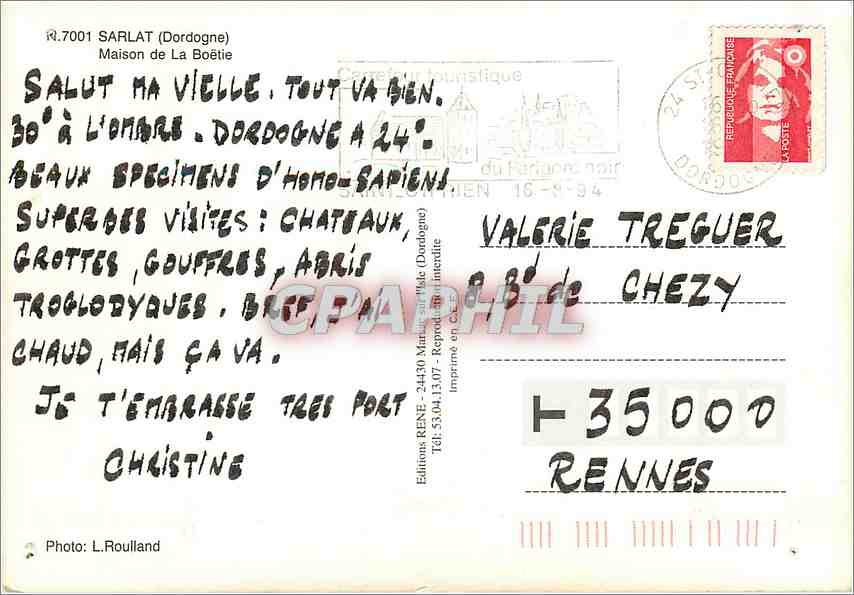 N.7001 SARLAT (Dordogne)
Maison de La Boëtie
SALUT MA VIELLE. TOUT VA BIEN.
30° à L'OMBRE. DORDOGNE A 24°.
BEAUX SPECIMENS D'HOMO-SAPIENS.
SUPERBES VISITES : CHATEAUX,
GROTTES, GOUFFRES, ABRIS
TROGLODYQUES. BREF, J'AI
CHAUD, MAIS ÇA VA.
JE T'EMBRASSE TRES FORT
CHRISTINE
Photo: L.Roulland
Editions RENE - 24430 Marsac sur l'Isle (Dordogne)
Tél: 53.04.13.07 - Reproduction interdite
Imprimé en C.E.E.
CPAPHIL
Carrefour touristique
du Périgord noir
SAINT-CYPRIEN 16-8-94
24 ST-C
16
DORDOGNE
REPUBLIQUE FRANÇAISE
LA POSTE
VALERIE TREGUER
8, Bd de CHEZY
T 35000
RENNES